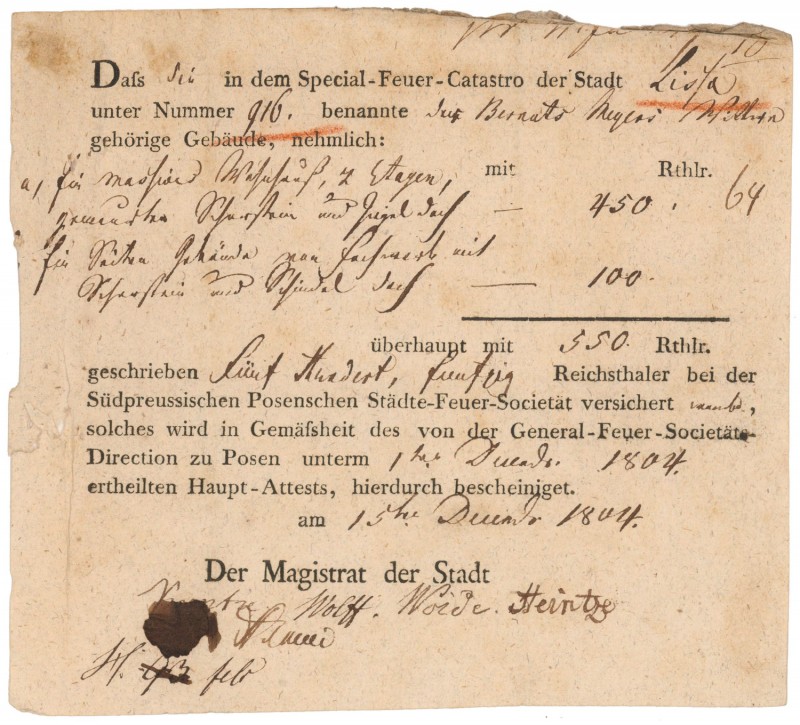 Daſs die in dem Special-Feuer-Catastro der Stadt Lissa
unter Nummer 916. benannte der Bernats Meyers Wittwe
gehörige Gebäude, nehmlich:
mit Rthlr.
a, Ein massives Wohnhauß, 2 Etagen,
gemauerten Schorstein und Ziegel dach — 450. 64
Ein Seiten Gebäude von Fachwerk mit
Schorstein und Schindel dach — 100.
überhaupt mit 550. Rthlr.
geschrieben Fünf Hundert, funfzig Reichsthaler bei der
Südpreussischen Posenschen Städte-Feuer-Societät versichert worden,
solches wird in Gemäſsheit des von der General-Feuer-Societäts-
Direction zu Posen unterm 1ten Decembr. 1804.
ertheilten Haupt-Attests, hierdurch bescheiniget.
am 15ten Decembr 1804.
Der Magistrat der Stadt
Wolff. Woide. Heintze